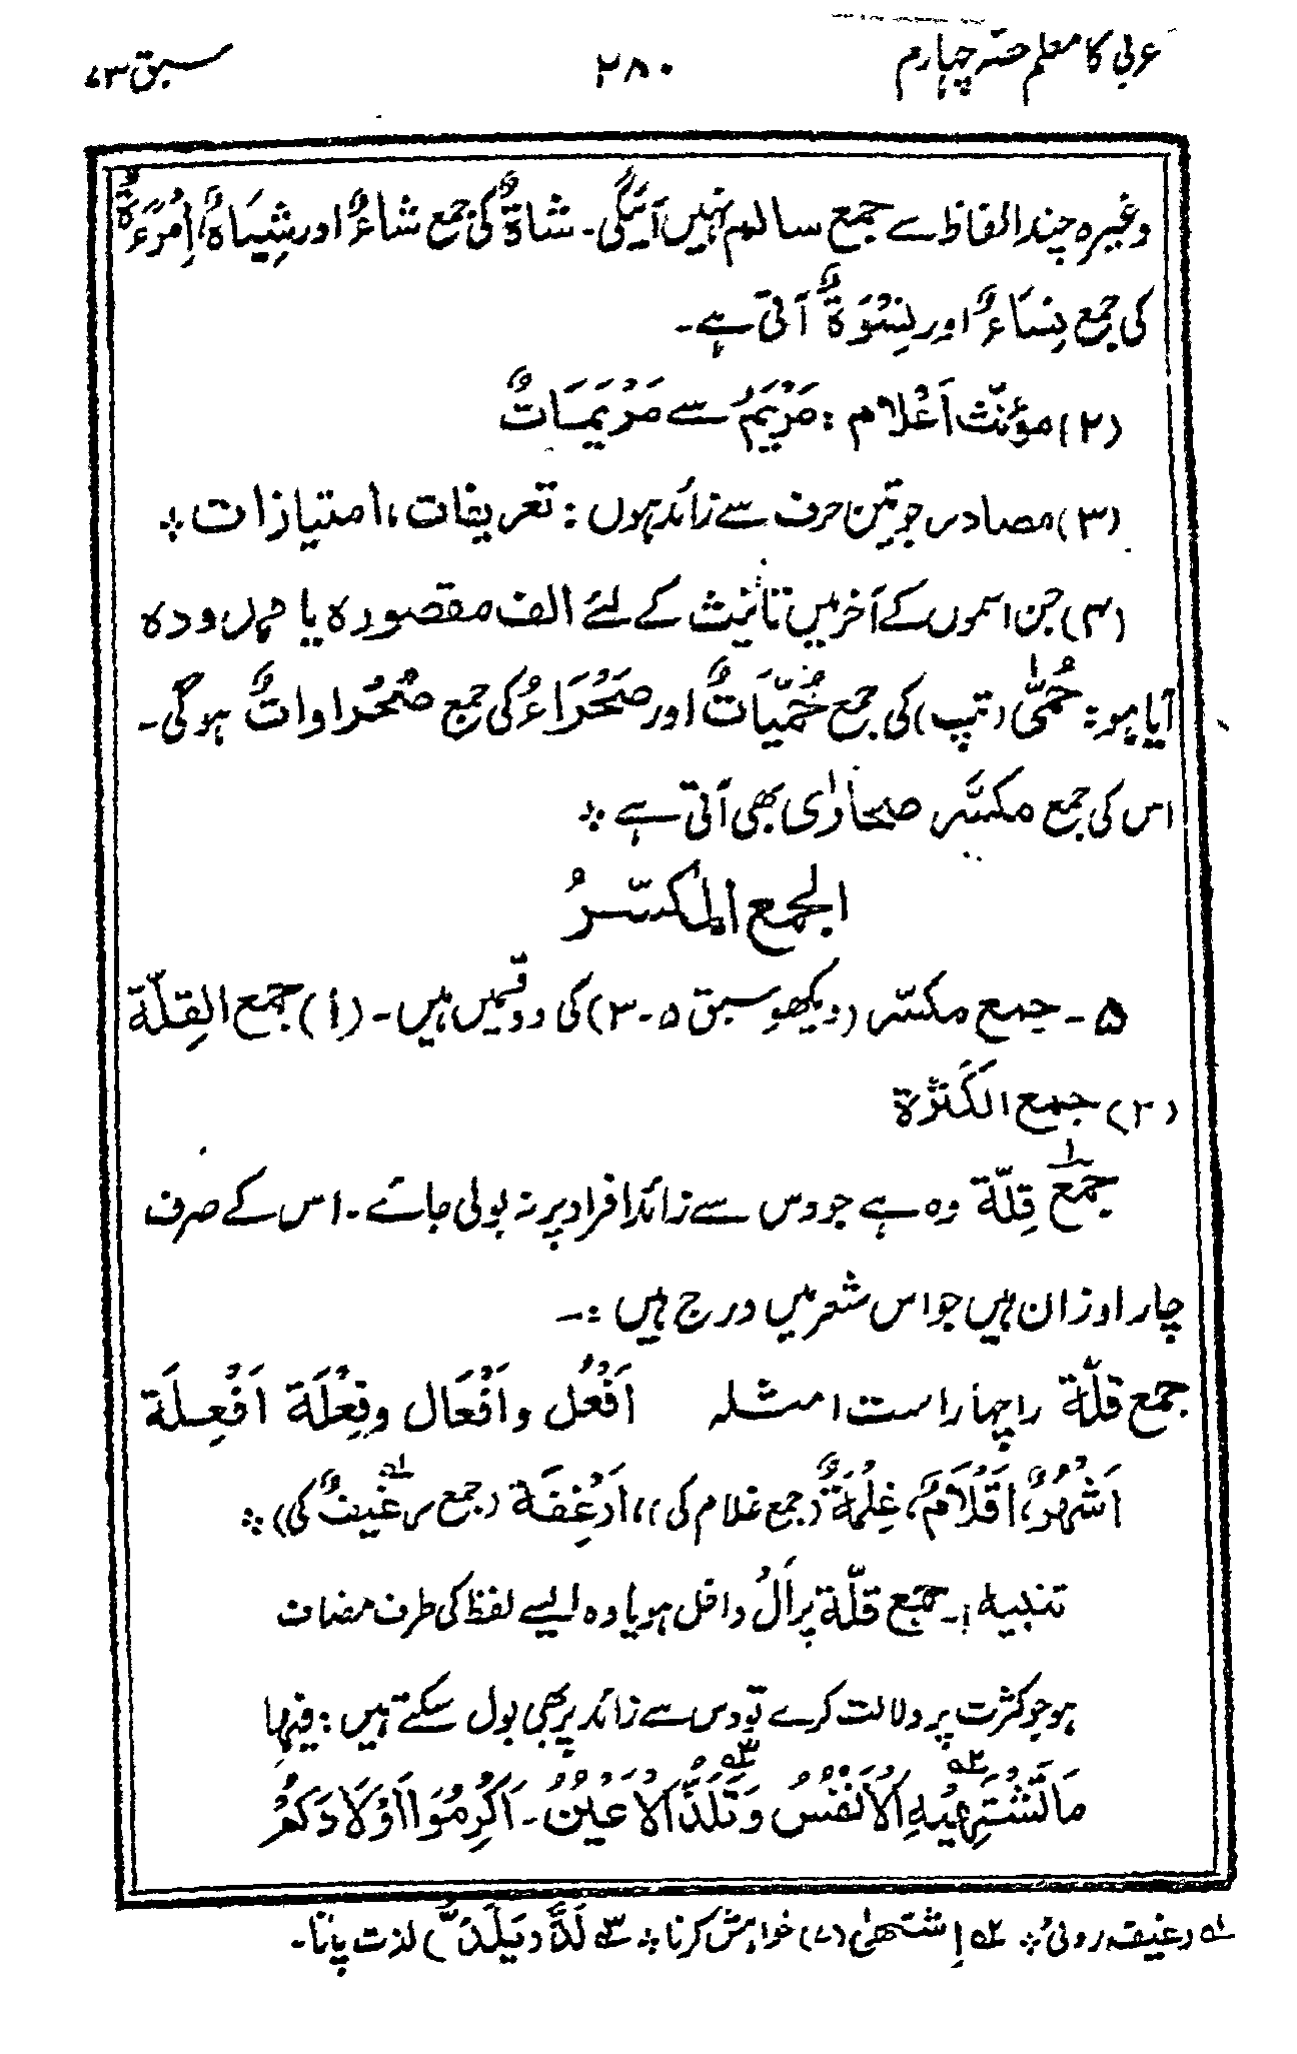 عربی کا معلم حصّہ چہارم
۲۸۰
سبق ۷۳
وغیرہ چند الفاظ سے جمع سالم نہیں آئیگی۔ شاةٌ کی جمع شاءٌ اور شِیَاهٌ، اِمْرَءَةٌ
کی جمع نِسَاءٌ اور نِسْوَةٌ آتی ہے۔
(۲) مؤنّث اَعْلام: مَرْیَمُ سے مَرْیَمَاتٌ
(۳) مصادر جو تین حرف سے زائد ہوں: تعریفات، امتیازات ؞
(۴) جن اسموں کے آخر میں تانیث کے لئے الف مقصورہ یا ممدودہ
آیا ہو: حُمّٰی (تپ) کی جمع حُمَّیَاتٌ اور صَحْرَاءُ کی جمع صَحْراواتٌ ہوگی۔
اس کی جمع مکسَّر صحاریٰ بھی آتی ہے ؞
الجمع المکسَّرُ
۵ ۔ جمع مکسَّر (دیکھو سبق ۵-۳) کی دو قسمیں ہیں۔ (۱) جمع القِلّة
(۲) جمع الکَثْرة
جمع قِلّة وہ ہے جو دس سے زائد افراد پر نہ بولی جائے۔ اس کے صرف
چار اوزان ہیں جو اس شعر میں درج ہیں :۔
جمع قلّة را چہار است امثلہ اَفْعُل و اَفْعَال و فِعْلَة اَفْعِلَة
اَشْهُرٌ، اَقْلَامٌ، غِلْمَةٌ (جمع غلام کی)، اَرْغِفَة (جمع رغیفٌ لہ کی) ؞
تنبیہ ۱۔ جمع قلّة پر اَلْ داخل ہو یا وہ ایسے لفظ کی طرف مضاف
ہو جو کثرت پر دلالت کرے تو دس سے زائد پر بھی بول سکتے ہیں: فیها
مَا تَشْتَهِیْهِ ۲ الْاَنْفُسُ وَتَلَذُّ ۳ الْاَعْیُنُ۔ اَکْرِمُوْا اَوْلَادَکُمْ
لہ رغیف روٹی ؞ ۲ اِشْتَهیٰ (۷) خواہش کرنا ؞ ۳ لَذَّ (یَلَذُّ) لذت پانا۔